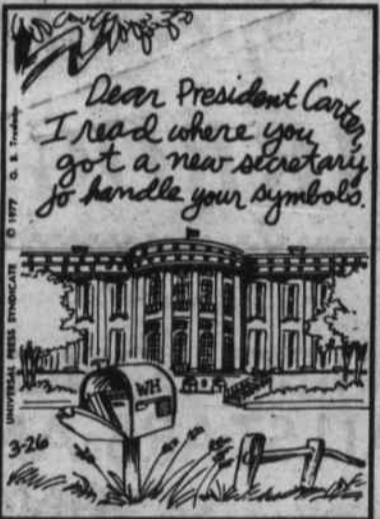 Dear President Carter,
I read where you
got a new secretary
to handle your symbols.
UNIVERSAL PRESS SYNDICATE © 1977 G. B. Trudeau
WH
3-26